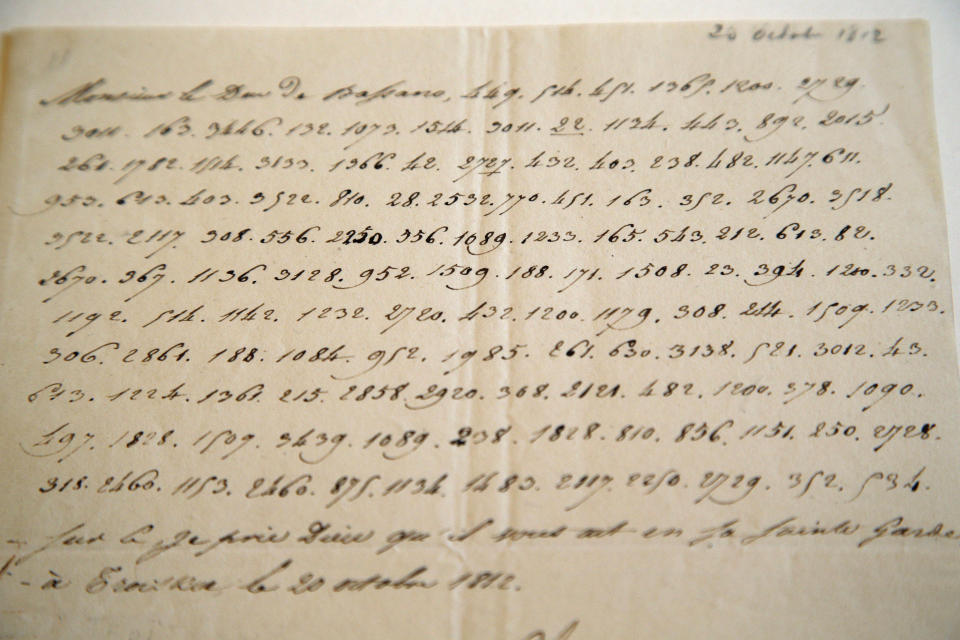 20 Octobre 1812
Monsieur le Duc de Bassano, 449. 514. 451. 1365. 1200. 2729.
3011. 163. 3446. 132. 1073. 1514. 3011. 22. 1134. 443. 892. 2015.
261. 1782. 1514. 3133. 1366. 42. 2727. 432. 403. 238. 482. 1147. 611.
953. 613. 403. 3522. 810. 28. 2532. 770. 451. 163. 352. 2670. 3518.
3522. 2117. 308. 556. 2250. 356. 1089. 1233. 165. 543. 212. 613. 82.
2670. 367. 1136. 3128. 952. 1509. 188. 171. 1508. 23. 394. 1200. 332.
1192. 514. 1142. 1232. 2720. 432. 1200. 1179. 308. 214. 1509. 1233.
306. 2861. 188. 1084. 952. 1985. 261. 630. 3138. 521. 3012. 43.
613. 1224. 1361. 215. 2858. 2920. 368. 2121. 482. 1200. 378. 1090.
497. 1828. 1509. 3439. 1089. 238. 1828. 810. 856. 1151. 250. 2728.
318. 2460. 1153. 2460. 875. 1134. 1483. 2117. 2250. 2729. 352. 534.
sur ce Je prie Dieu qu'il vous ait en sa Sainte Garde
à Troiskoe le 20 octobre 1812.